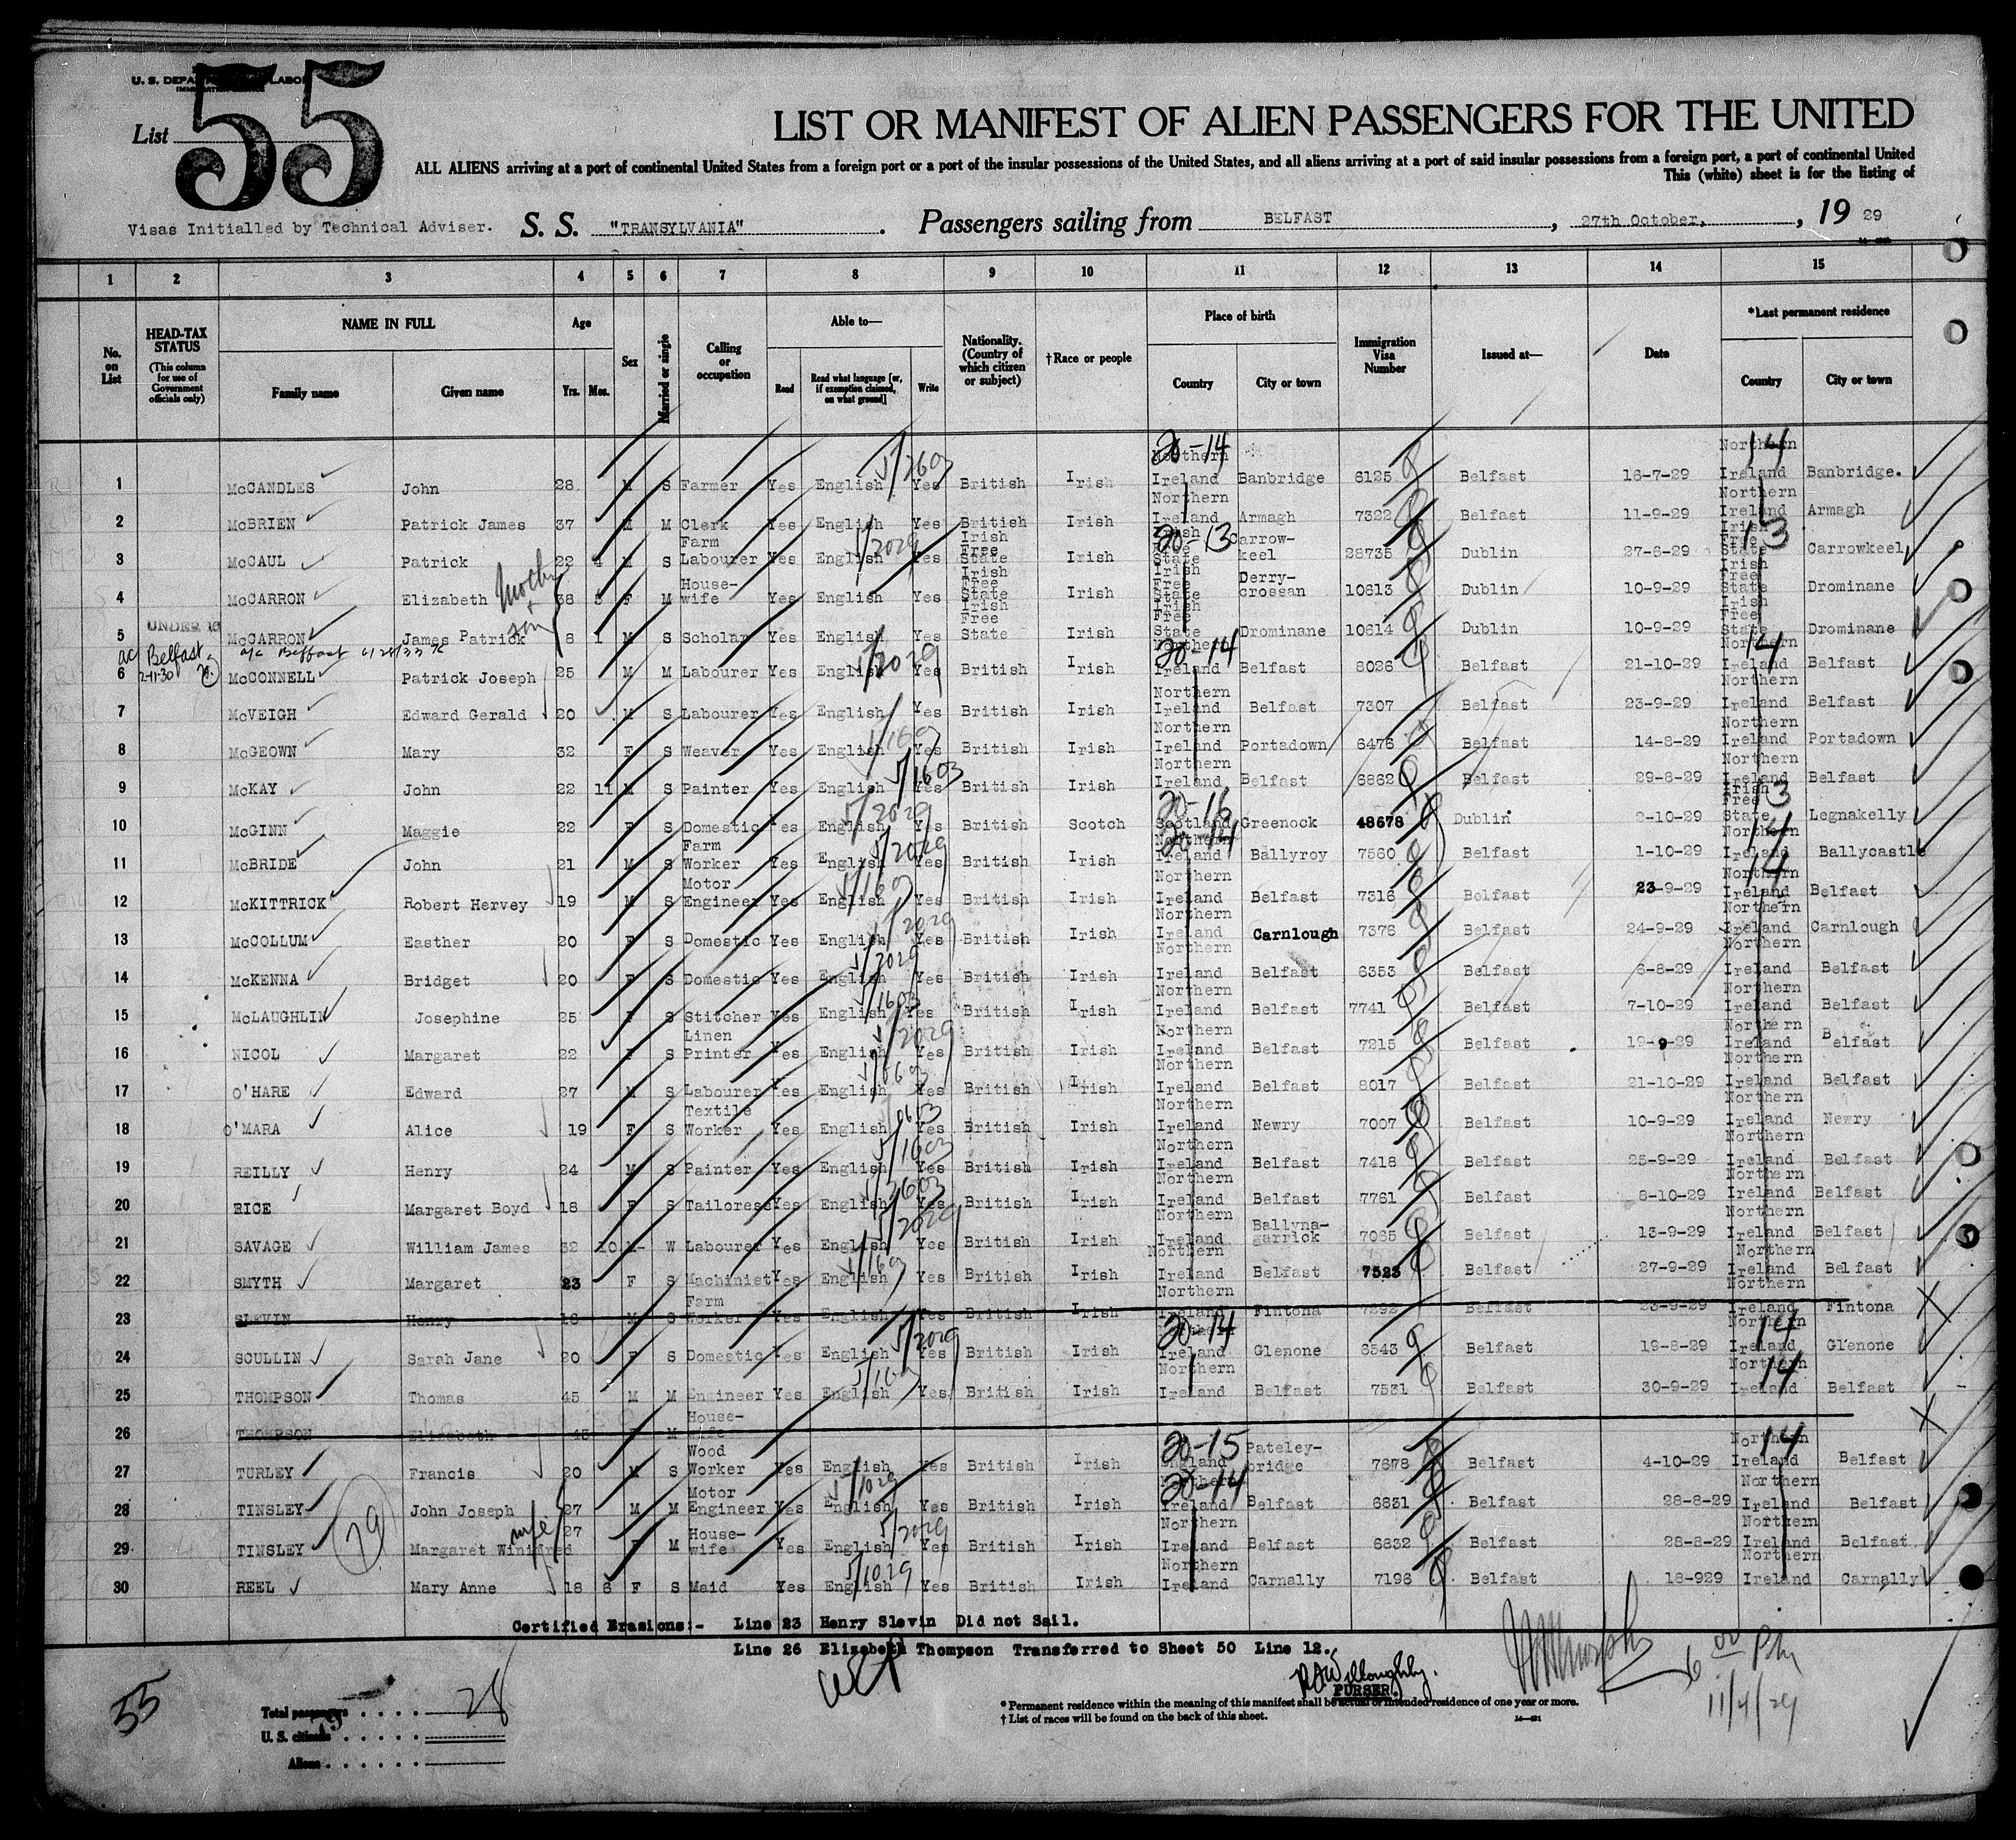 U. S. DEPARTMENT OF LABOR
List 55
LIST OR MANIFEST OF ALIEN PASSENGERS FOR THE UNITED
ALL ALIENS arriving at a port of continental United States from a foreign port or a port of the insular possessions of the United States, and all aliens arriving at a port of said insular possessions from a foreign port, a port of continental United
This (white) sheet is for the listing of
Visas Initialled by Technical Adviser. S. S. "TRANSYLVANIA" . Passengers sailing from BELFAST , 27th October, , 19 29
1 2 3 4 5 6 7 8 9 10 11 12 13 14 15
No. on List HEAD-TAX STATUS (This column for use of Government officials only) NAME IN FULL Family name Given name Age Yrs. Mos. Sex Married or single Calling or occupation Able to— Read Read what language [or, if exemption claimed, on what ground] Write Nationality. (Country of which citizen or subject) †Race or people Place of birth Country City or town Immigration Visa Number Issued at— Date *Last permanent residence Country City or town
1 McCANDLES John 28 M S Farmer Yes English Yes British Irish Northern Ireland Banbridge 6125 Belfast 16-7-29 Northern Ireland Banbridge.
2 McBRIEN Patrick James 37 M M Clerk Yes English Yes British Irish Northern Ireland Armagh 7322 Belfast 11-9-29 Northern Ireland Armagh
3 McCAUL Patrick 22 4 M S Farm Labourer Yes English Yes Irish Free State Irish Irish Free State Carrow-keel 28735 Dublin 27-6-29 Irish Free State Carrowkeel
4 McCARRON Elizabeth 38 3 F M House-wife Yes English Yes Irish Free State Irish Irish Free State Derry-crossan 10613 Dublin 10-9-29 Irish Free State Drominane
Mother + son
5 UNDER 16 McCARRON James Patrick 8 1 M S Scholar Yes English Yes Irish Free State Irish Irish Free State Drominane 10614 Dublin 10-9-29 Irish Free State Drominane
a/c Belfast 2-11-30 a/c Belfast
6 McCONNELL Patrick Joseph 25 M M Labourer Yes English Yes British Irish Northern Ireland Belfast 8026 Belfast 21-10-29 Northern Ireland Belfast
7 McVEIGH Edward Gerald 20 M S Labourer Yes English Yes British Irish Northern Ireland Belfast 7307 Belfast 23-9-29 Northern Ireland Belfast
8 McGEOWN Mary 32 F S Weaver Yes English Yes British Irish Northern Ireland Portadown 6476 Belfast 14-8-29 Northern Ireland Portadown
9 McKAY John 22 11 M S Painter Yes English Yes British Irish Northern Ireland Belfast 6862 Belfast 29-8-29 Northern Ireland Belfast
10 McGINN Maggie 22 F S Domestic Yes English Yes British Scotch Scotland Greenock 48678 Dublin 2-10-29 Irish Free State Legnakelly
11 McBRIDE John 21 M S Farm Worker Yes English Yes British Irish Northern Ireland Ballyroy 7560 Belfast 1-10-29 Northern Ireland Ballycastle
12 McKITTRICK Robert Hervey 19 M S Motor Engineer Yes English Yes British Irish Northern Ireland Belfast 7316 Belfast 23-9-29 Northern Ireland Belfast
13 McCOLLUM Easther 20 F S Domestic Yes English Yes British Irish Northern Ireland Carnlough 7376 Belfast 24-9-29 Northern Ireland Carnlough
14 McKENNA Bridget 20 F S Domestic Yes English Yes British Irish Northern Ireland Belfast 6353 Belfast 6-8-29 Northern Ireland Belfast
15 McLAUGHLIN Josephine 25 F S Stitcher Yes English Yes British Irish Northern Ireland Belfast 7741 Belfast 7-10-29 Northern Ireland Belfast
16 NICOL Margaret 22 F S Linen Printer Yes English Yes British Irish Northern Ireland Belfast 7215 Belfast 19-9-29 Northern Ireland Belfast
17 O'HARE Edward 27 M S Labourer Yes English Yes British Irish Northern Ireland Belfast 8017 Belfast 21-10-29 Northern Ireland Belfast
18 O'MARA Alice 19 F S Textile Worker Yes English Yes British Irish Northern Ireland Newry 7007 Belfast 10-9-29 Northern Ireland Newry
19 REILLY Henry 24 M S Painter Yes English Yes British Irish Northern Ireland Belfast 7418 Belfast 25-9-29 Northern Ireland Belfast
20 RICE Margaret Boyd 18 F S Tailoress Yes English Yes British Irish Northern Ireland Belfast 7761 Belfast 8-10-29 Northern Ireland Belfast
21 SAVAGE William James 32 10 M W Labourer Yes English Yes British Irish Northern Ireland Ballyna-garrick 7065 Belfast 13-9-29 Northern Ireland Belfast
22 SMYTH Margaret 23 F S Machinist Yes English Yes British Irish Northern Ireland Belfast 7523 Belfast 27-9-29 Northern Ireland Belfast
23 SLEVIN Henry 18 M S Farm Worker Yes English Yes British Irish Northern Ireland Fintona 7292 Belfast 23-9-29 Northern Ireland Fintona
24 SCULLIN Sarah Jane 20 F S Domestic Yes English Yes British Irish Northern Ireland Glenone 6543 Belfast 19-8-29 Northern Ireland Glenone
25 THOMPSON Thomas 45 M M Engineer Yes English Yes British Irish Northern Ireland Belfast 7531 Belfast 30-9-29 Northern Ireland Belfast
26 THOMPSON Elizabeth 45 M House-wife
27 TURLEY Francis 20 M S Wood Worker Yes English Yes British Irish England Pateley-bridge 7678 Belfast 4-10-29 Northern Ireland Belfast
28 TINSLEY John Joseph 27 M M Motor Engineer Yes English Yes British Irish Northern Ireland Belfast 6831 Belfast 28-8-29 Northern Ireland Belfast
29 TINSLEY Margaret Winifred wife 27 F M House-wife Yes English Yes British Irish Northern Ireland Belfast 6832 Belfast 28-8-29 Northern Ireland Belfast.
30 REEL Mary Anne 18 6 F S Maid Yes English Yes British Irish Northern Ireland Carnally 7196 Belfast 18-929 Northern Ireland Carnally
Certified Erasions:- Line 23 Henry Slevin Did not Sail.
Line 26 Elizabeth Thompson Transferred to Sheet 50 Line 12.
55
R A Willoughby.
PURSER.
6 00 PM
11/4/29
Total passengers . . . . 28
U. S. citizens . . . . .
Aliens . . . . . .
* Permanent residence within the meaning of this manifest shall be actual or intended residence of one year or more.
† List of races will be found on the back of this sheet.